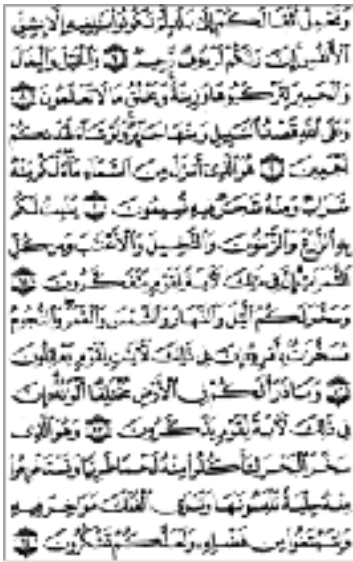 وَتَحْمِلُ أَثْقَالَكُمْ إِلَىٰ بَلَدٍ لَّمْ تَكُونُوا بَالِغِيهِ إِلَّا بِشِقِّ
الْأَنفُسِ إِنَّ رَبَّكُمْ لَرَءُوفٌ رَّحِيمٌ ۝ وَالْخَيْلَ وَالْبِغَالَ
وَالْحَمِيرَ لِتَرْكَبُوهَا وَزِينَةً وَيَخْلُقُ مَا لَا تَعْلَمُونَ ۝
وَعَلَى اللَّهِ قَصْدُ السَّبِيلِ وَمِنْهَا جَائِرٌ وَلَوْ شَاءَ لَهَدَاكُمْ
أَجْمَعِينَ ۝ هُوَ الَّذِي أَنزَلَ مِنَ السَّمَاءِ مَاءً لَّكُم مِّنْهُ
شَرَابٌ وَمِنْهُ شَجَرٌ فِيهِ تُسِيمُونَ ۝ يُنبِتُ لَكُم
بِهِ الزَّرْعَ وَالزَّيْتُونَ وَالنَّخِيلَ وَالْأَعْنَابَ وَمِن كُلِّ
الثَّمَرَاتِ إِنَّ فِي ذَٰلِكَ لَآيَةً لِّقَوْمٍ يَتَفَكَّرُونَ ۝
وَسَخَّرَ لَكُمُ اللَّيْلَ وَالنَّهَارَ وَالشَّمْسَ وَالْقَمَرَ وَالنُّجُومُ
مُسَخَّرَاتٌ بِأَمْرِهِ إِنَّ فِي ذَٰلِكَ لَآيَاتٍ لِّقَوْمٍ يَعْقِلُونَ
۝ وَمَا ذَرَأَ لَكُمْ فِي الْأَرْضِ مُخْتَلِفًا أَلْوَانُهُ إِنَّ
فِي ذَٰلِكَ لَآيَةً لِّقَوْمٍ يَذَّكَّرُونَ ۝ وَهُوَ الَّذِي
سَخَّرَ الْبَحْرَ لِتَأْكُلُوا مِنْهُ لَحْمًا طَرِيًّا وَتَسْتَخْرِجُوا
مِنْهُ حِلْيَةً تَلْبَسُونَهَا وَتَرَى الْفُلْكَ مَوَاخِرَ فِيهِ
وَلِتَبْتَغُوا مِن فَضْلِهِ وَلَعَلَّكُمْ تَشْكُرُونَ ۝